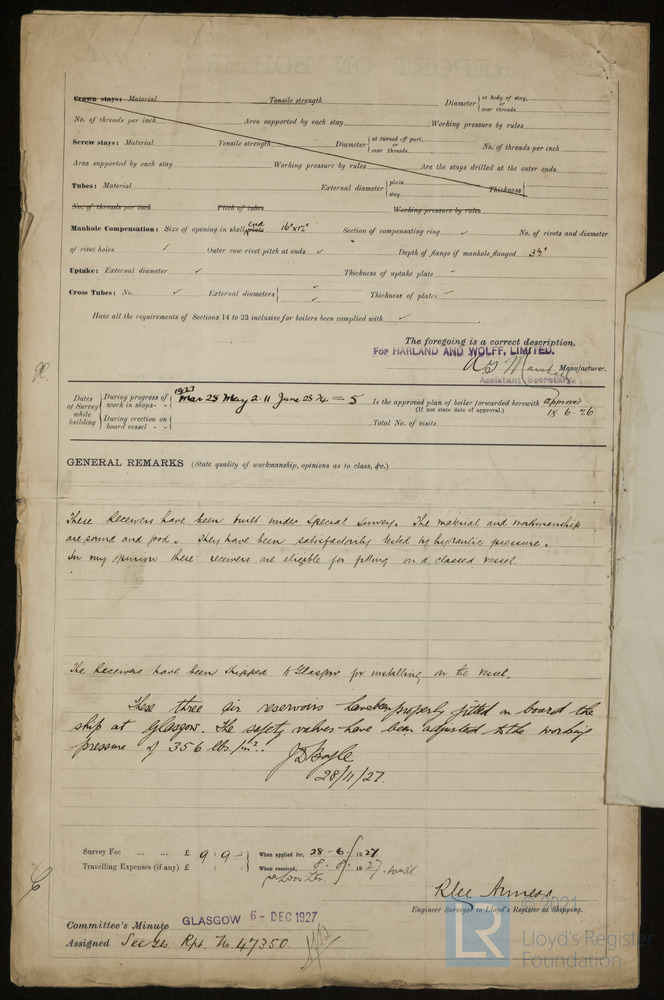 Crown stays: Material Tensile strength Diameter at body of stay, or over threads
No. of threads per inch Area supported by each stay Working pressure by rules
Screw stays: Material Tensile strength Diameter at turned off part, or over threads No. of threads per inch
Area supported by each stay Working pressure by rules Are the stays drilled at the outer ends
Tubes: Material External diameter plain stay Thickness
No. of threads per inch Pitch of tubes Working pressure by rules
Manhole Compensation: Size of opening in shell plate end 16"x12" Section of compensating ring ✓ No. of rivets and diameter
of rivet holes ✓ Outer row rivet pitch at ends ✓ Depth of flange if manhole flanged 3½"
Uptake: External diameter ✓ Thickness of uptake plate
Cross Tubes: No. ✓ External diameters Thickness of plates
Have all the requirements of Sections 14 to 23 inclusive for boilers been complied with ✓
The foregoing is a correct description,
For HARLAND AND WOLFF, LIMITED.
Manufacturer.
Assistant Secretary.
Dates of Survey while building
During progress of work in shops - - 1927 Mar 25 May 2. 11 June 23 24 = 5
During erection on board vessel - -
Is the approved plan of boiler forwarded herewith Approved 18.6.26
(If not state date of approval.)
Total No. of visits
GENERAL REMARKS (State quality of workmanship, opinions as to class, &c.)
These Receivers have been built under Special Survey. The material and workmanship
are sound and good. They have been satisfactorily tested by hydraulic pressure.
In my opinion these receivers are eligible for fitting on a classed vessel.
The Receivers have been shipped to Glasgow for installing on the vessel.
These three air reservoirs have been properly fitted on board the
ship at Glasgow. The safety valves have been adjusted to the working
pressure of 356 lbs./in².
28/11/27.
Survey Fee ... ... £ 9 : 9 - When applied for, 28 - 6 - 1927.
Travelling Expenses (if any) £ : : When received, 8. 1927.
Engineer Surveyor to Lloyd's Register of Shipping.
Committee's Minute GLASGOW 6 - DEC 1927
Assigned See Gls. Rpt. No. 47350
© 2021
LR
Lloyd's Register
Foundation